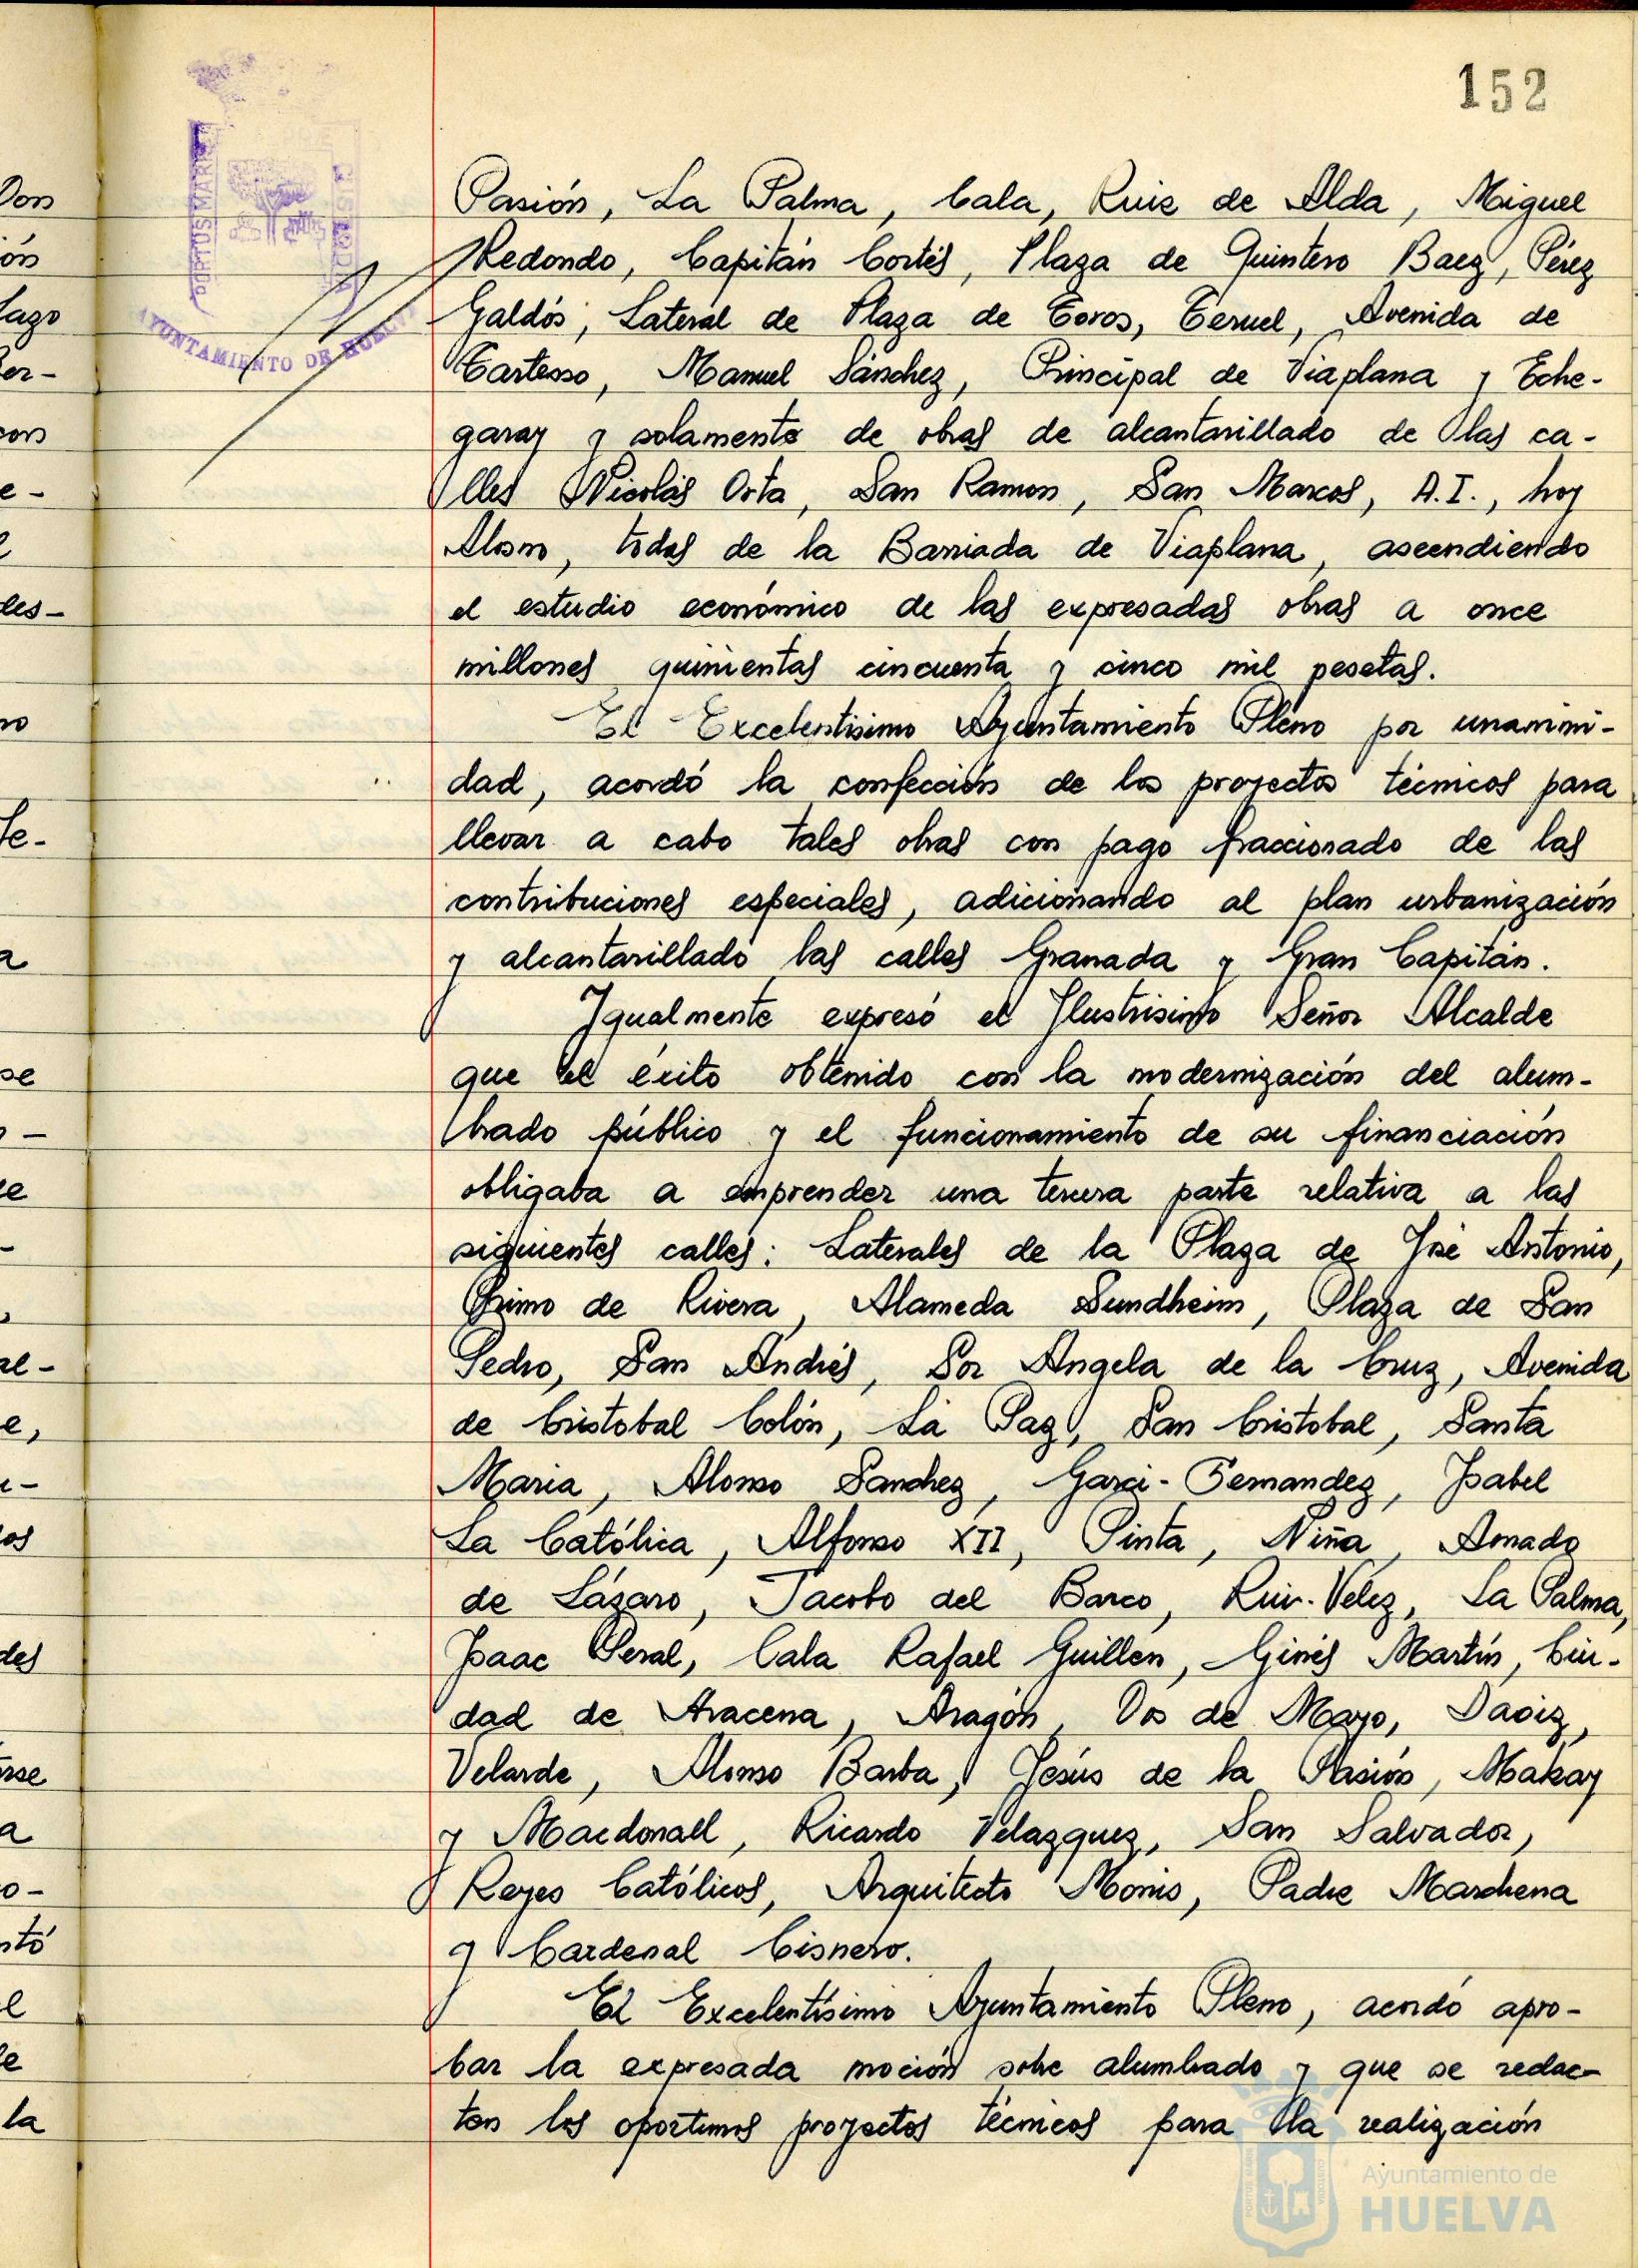 152
Pasión, La Palma, Cala, Ruiz de Alda, Miguel
Redondo, Capitán Cortés, Plaza de Quintero Baez, Pérez
Galdós, Lateral de Plaza de Toros, Teruel, Avenida de
Tartesso, Manuel Sánchez, Principal de Viaplana y Eche-
garay y solamente de obras de alcantarillado de las ca-
lles Nicolás Orta, San Ramon, San Marcos, A.I., hoy
Alosno, todas de la Barriada de Viaplana, ascendiendo
el estudio económico de las expresadas obras a once
millones quinientas cincuenta y cinco mil pesetas.
El Excelentísimo Ayuntamiento Pleno por unanimi-
dad, acordó la confección de los proyectos técnicos para
llevar a cabo tales obras con pago fraccionado de las
contribuciones especiales, adicionando al plan urbanización
y alcantarillado las calles Granada y Gran Capitán.
Igualmente expresó el Ilustrisimo Señor Alcalde
que el éxito obtenido con la modernización del alum-
brado público y el funcionamiento de su financiación
obligaba a emprender una tercera parte relativa a las
siguientes calles: Laterales de la Plaza de José Antonio,
Primo de Rivera, Alameda Sundheim, Plaza de San
Pedro, San Andrés, Sor Angela de la Cruz, Avenida
de Cristobal Colón, La Paz, San Cristobal, Santa
Maria, Alonso Sanchez, Garci-Fernandez, Isabel
La Católica, Alfonso XII, Pinta, Niña, Amado
de Lázaro, Jacobo del Barco, Rui-Velez, La Palma,
Isaac Peral, Cala Rafael Guillén, Ginés Martín, Ciu-
dad de Aracena, Aragón, Dos de Mayo, Daoiz,
Velarde, Alonso Barba, Jesús de la Pasión, Makay
y Macdonall, Ricardo Velazquez, San Salvador,
Reyes Católicos, Arquitecto Monis, Padre Marchena
y Cardenal Cisnero.
El Excelentísimo Ayuntamiento Pleno, acordó apro-
bar la expresada moción sobre alumbrado y que se redac-
ten los oportunos proyectos técnicos para la realización
PORTUS MARIS
AYUNTAMIENTO DE HUELVA
Ayuntamiento de
HUELVA